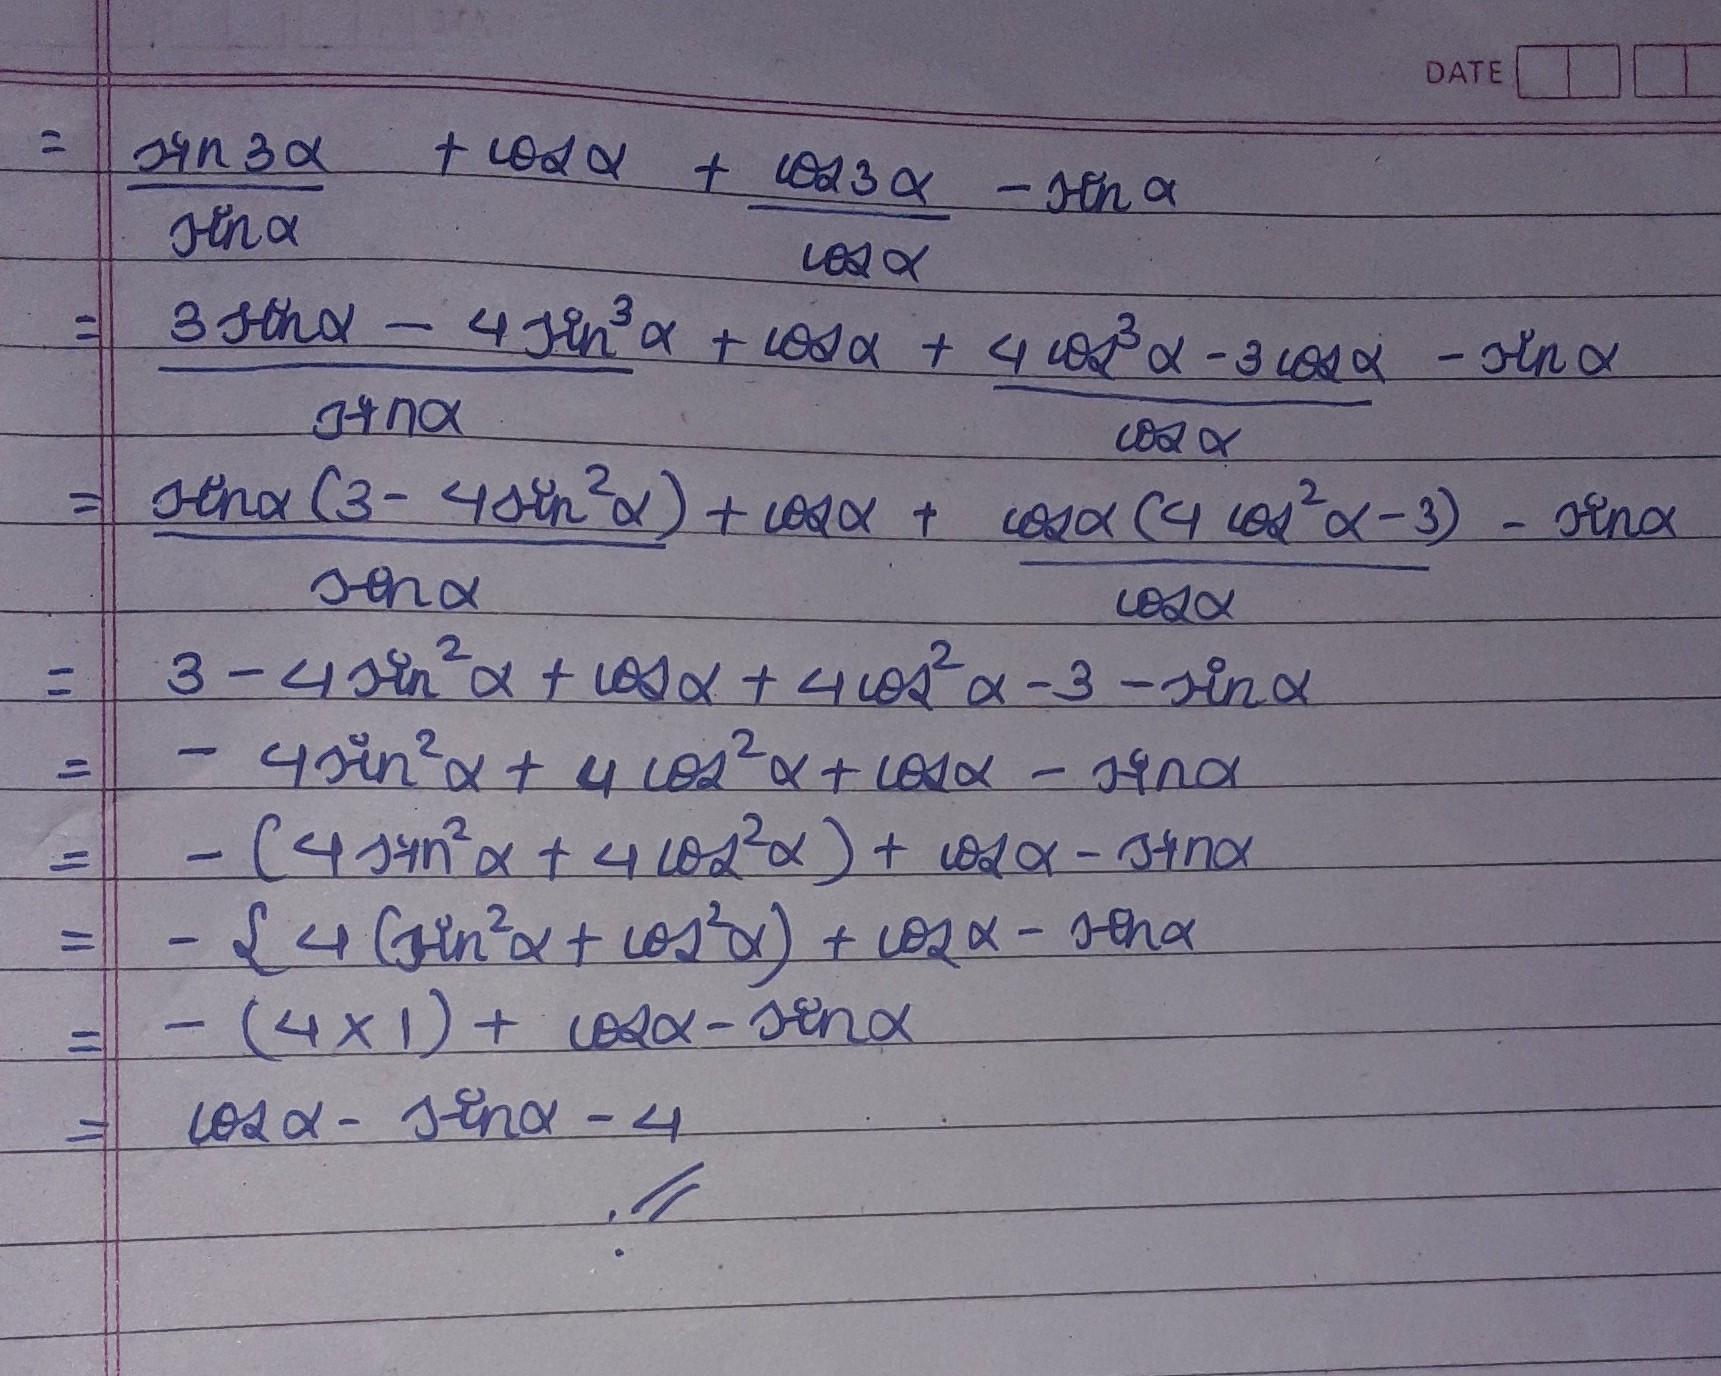 DATE
= sin3α/sinα + cosα + cos3α/cosα - sinα
= 3sinα - 4sin³α/sinα + cosα + 4cos³α - 3cosα/cosα - sinα
= sinα(3 - 4sin²α)/sinα + cosα + cosα(4cos²α - 3)/cosα - sinα
= 3 - 4sin²α + cosα + 4cos²α - 3 - sinα
= - 4sin²α + 4cos²α + cosα - sinα
= - (4sin²α + 4cos²α) + cosα - sinα
= - { 4(sin²α + cos²α) + cosα - sinα
= - (4 × 1) + cosα - sinα
= cosα - sinα - 4